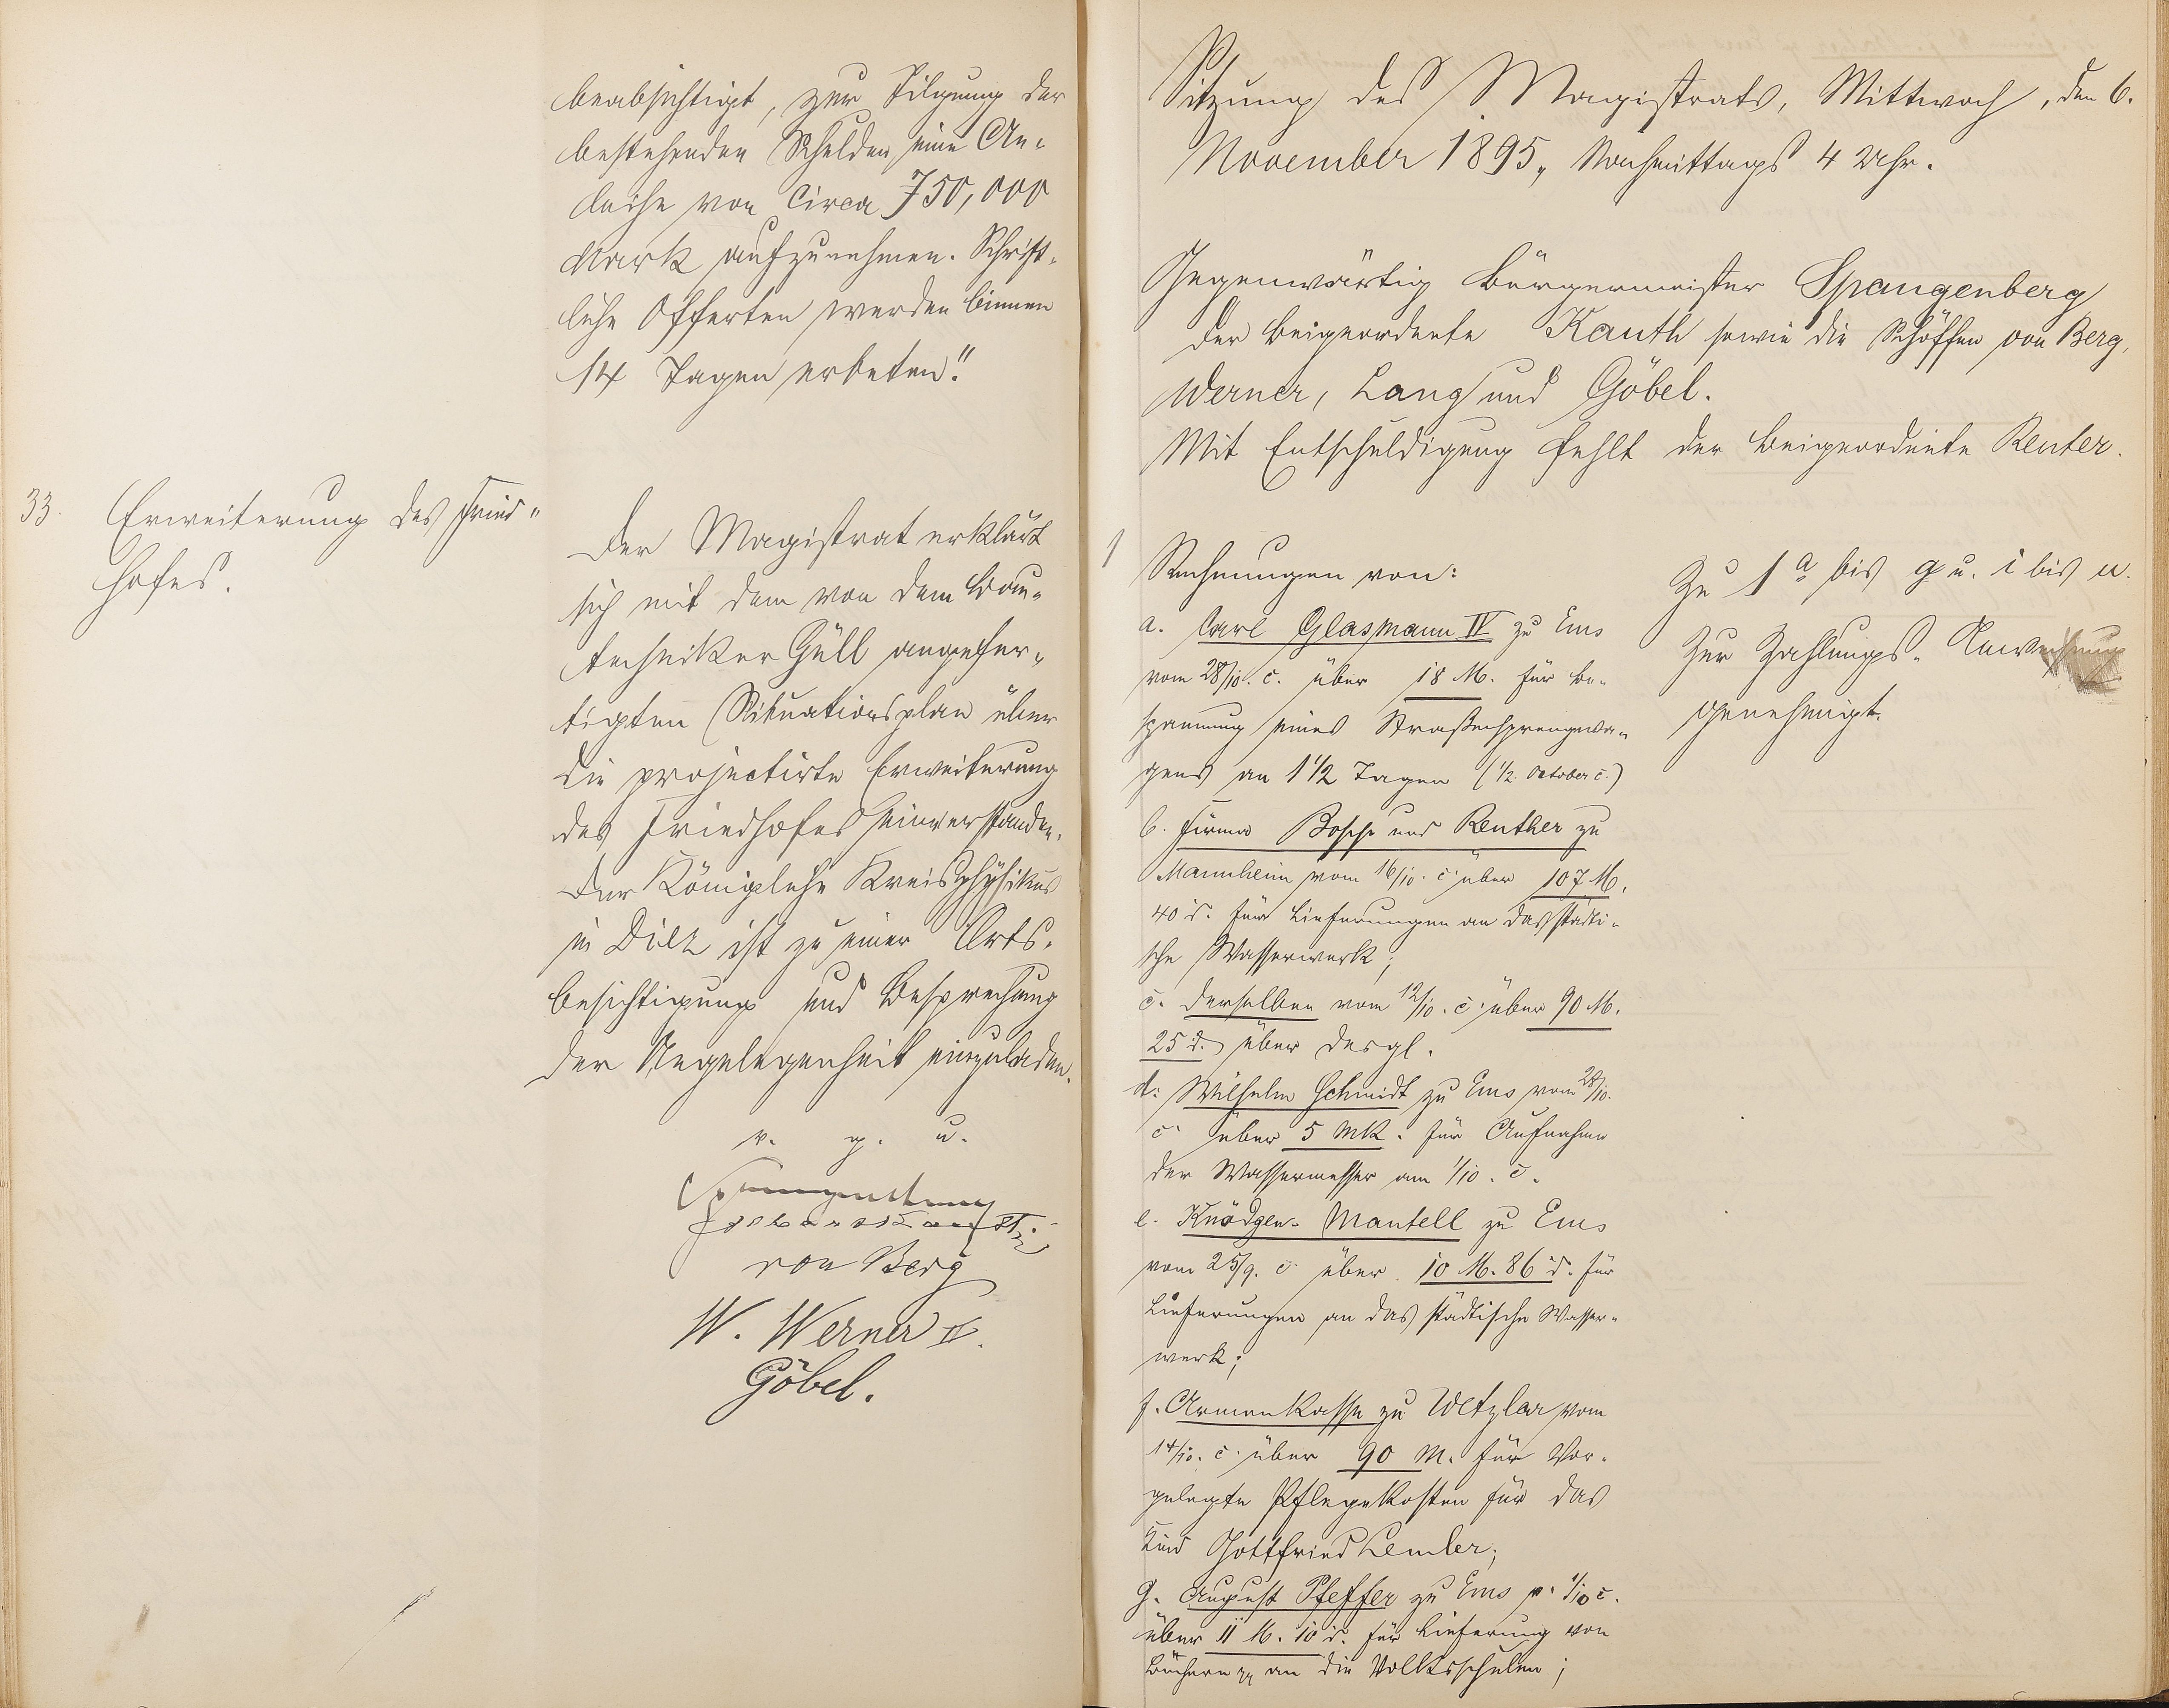 beabsichtigt, zur Tilgung der
bestehenden Schulden eine An-
leihe von circa 750,000
Mark aufzunehmen. Schrift-
liche Offerten werden binnen
14 Tagen erbeten."
33. Erweiterung des Fried-
hofes.
Der Magistrat erklärt
sich mit dem von dem Bau-
techniker Güll angefer-
tigten Situationsplan über
die projectirte Erweiterung
des Friedhofes einverstanden.
Der Königliche Kreisphysikus
in Diez ist zu einer Orts-
besichtigung und Besprechung
der Angelegenheit einzuladen.
v. g. u.
Spangenberg
von Berg
W. Werner II.
Göbel.
Sitzung des Magistrats, Mittwoch, den 6.
November 1895, Nachmittags 4 Uhr.
Gegenwärtig Bürgermeister Spangenberg
der Beigeordnete Kauth sowie die Schöffen von Berg,
Werner, Lang und Göbel.
Mit Entschuldigung fehlt der Beigeordnete Reuter.
1 Rechnungen von:
a. Carl Glasmann IV zu Ems
vom 28/10. c. über 18 M. für Be-
spannung eines Straßensprengwa-
gens an 1 1/2 Tagen (1/2. October c.)
b. Firma Bopp und Reuther zu
Mannheim vom 16/10. c. über 107 M.
40 d. für Lieferungen an das städti-
sche Wasserwerk;
c. derselben vom 12/10. c. über 90 M.
25 d. über desgl.
d. Wilhelm Schmidt zu Ems vom 28/10.
c. über 5 Mk. für Aufnahme
der Wassermesser am 1/10. c.
e. Knödgen-Mantell zu Ems
vom 25/9. c. über 10 M. 86 d. für
Lieferungen an das städtische Wasser-
werk;
f. Armenkasse zu Wetzlar vom
14/10. c. über 90 M. für Vor-
gelegte Pflegekosten für das
Kind Gottfried Lemler;
g. August Pfeffer zu Ems v. 1/10 c.
über 11 M. 10 d. für Lieferung von
Büchern pp an die Volksschulen;
Zu 1 a bis g u. i bis u.
Zur Zahlungs-Anweisung
genehmigt.